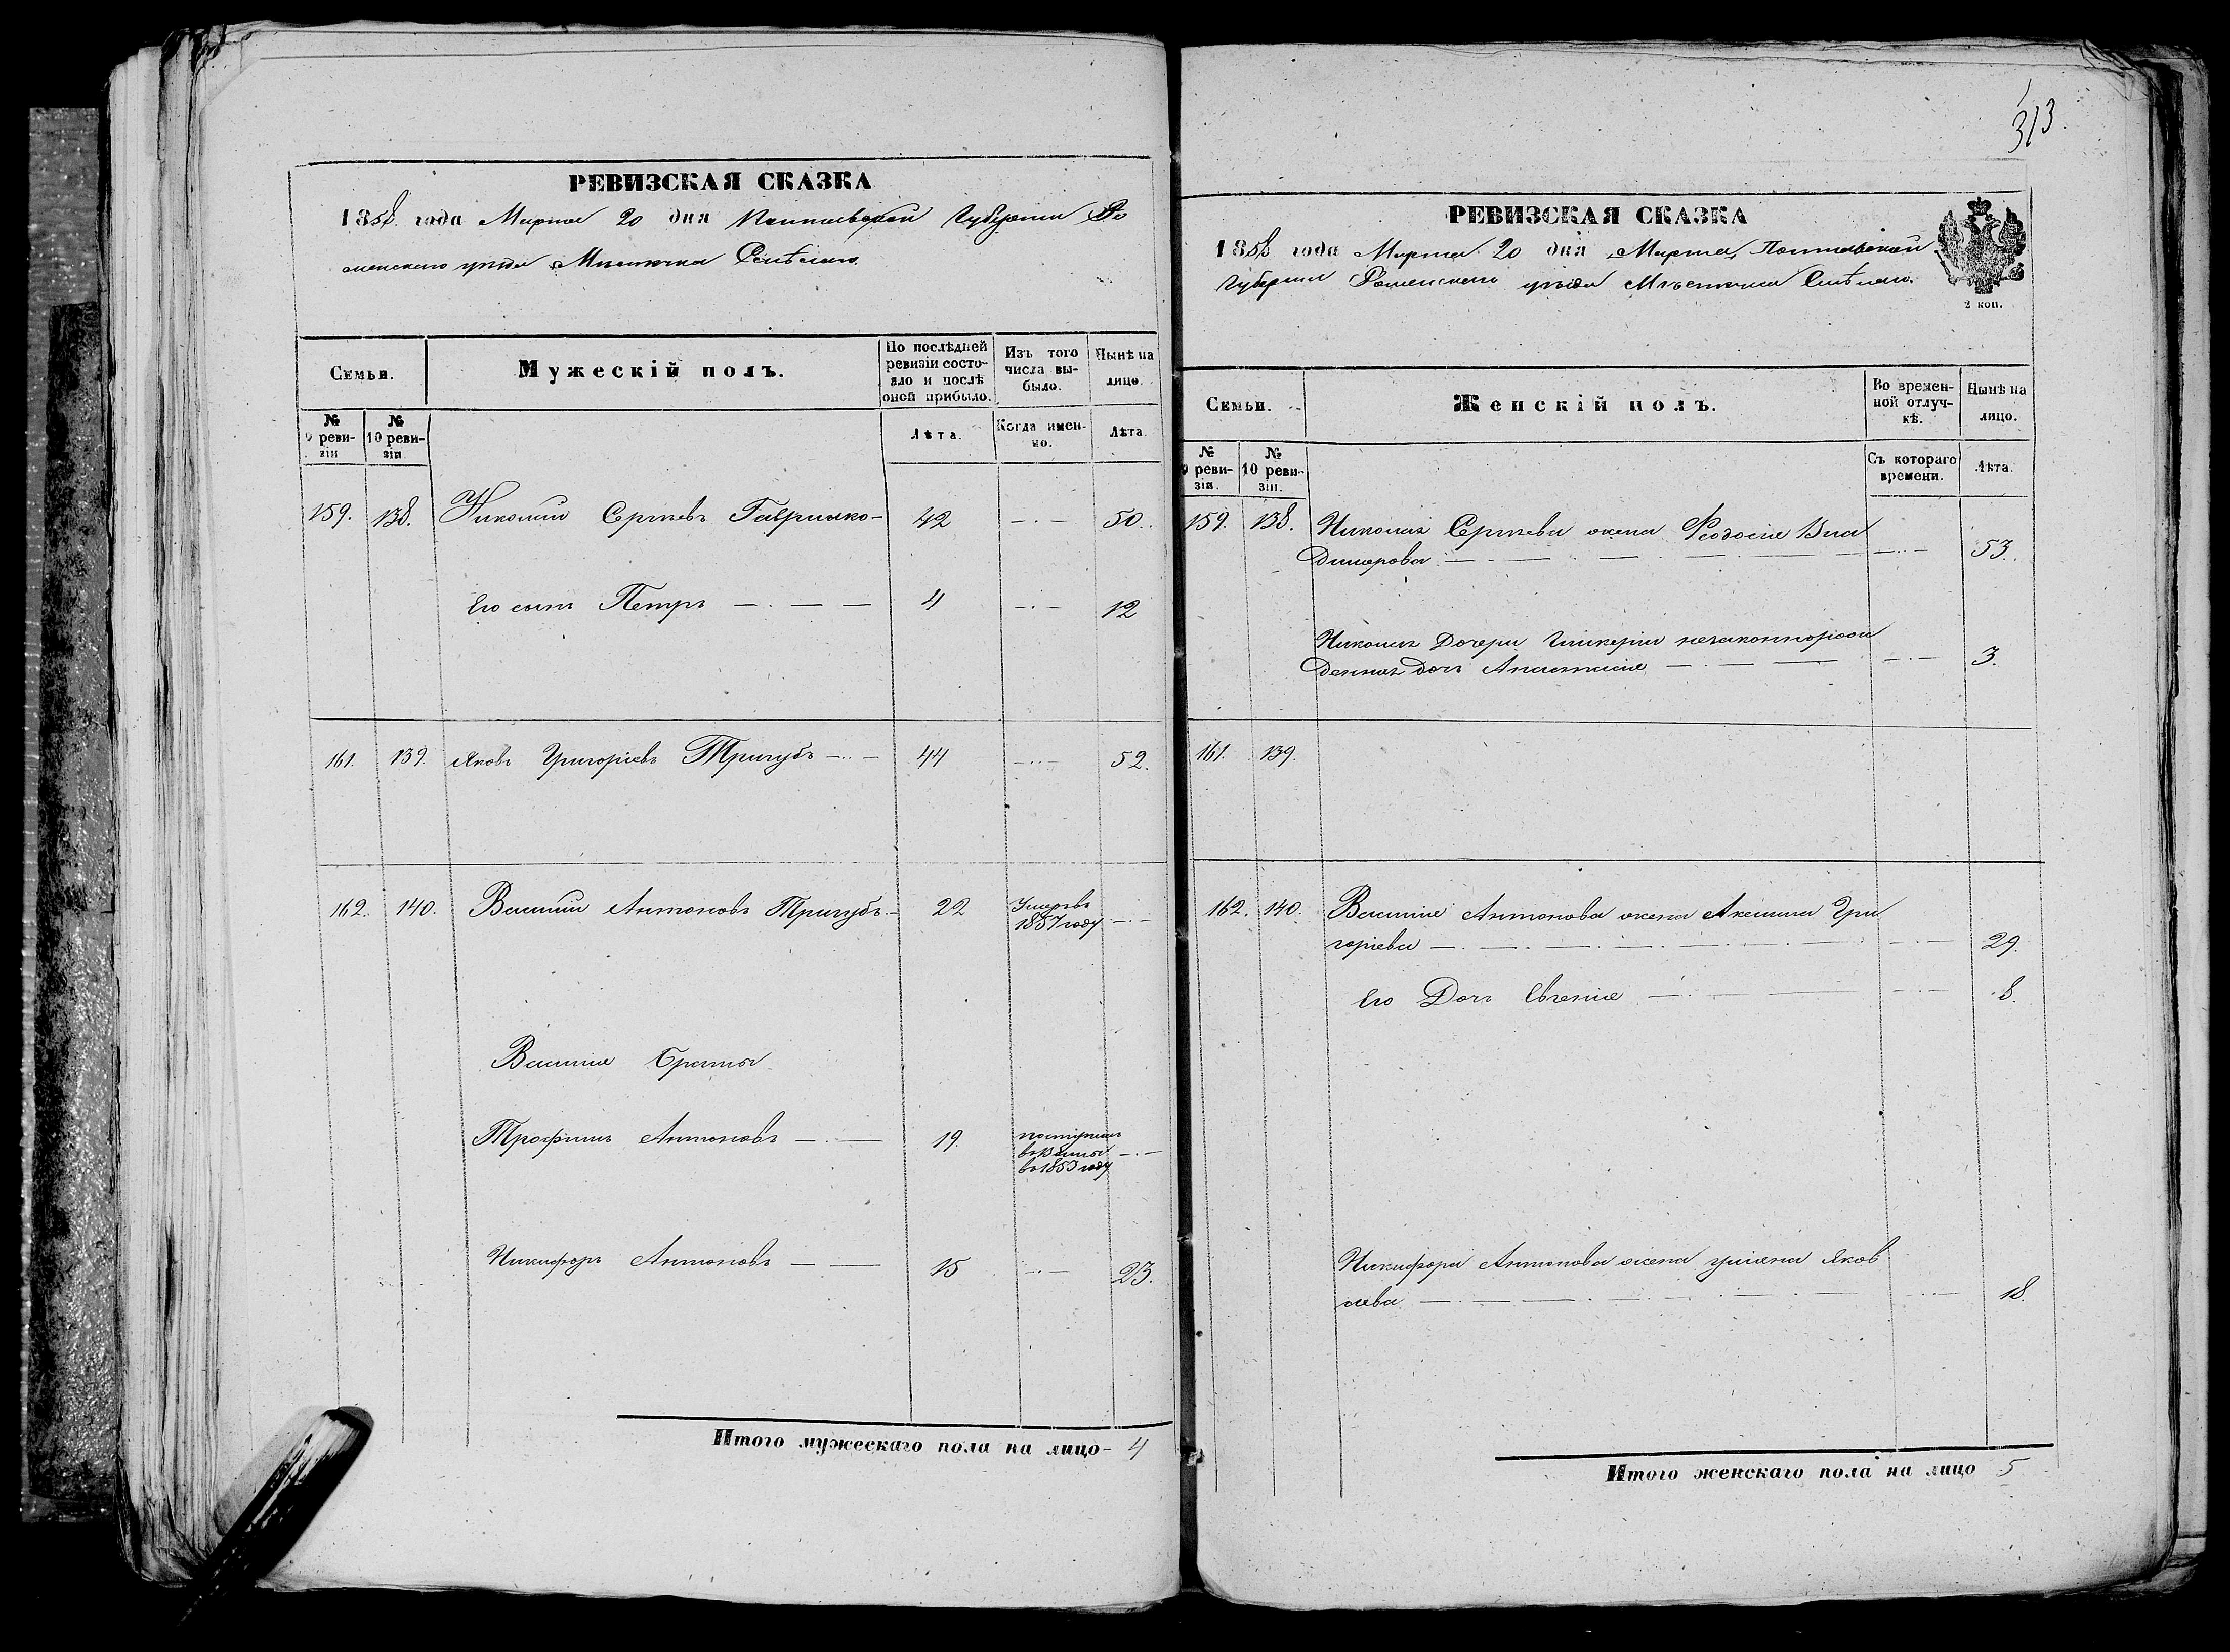 РЕВИЗСКАЯ СКАЗКА
1858 года Марта 20 дня Полтавской Губернии Ро
менскаго уезда Местечка Смѣлаго.
Семьи.
Мужескій полъ.
По послѣдней ревизіи состояло и послѣ оной прибыло.
Изъ того числа выбыло.
Нынѣ на лицо.
№ 9 ревизіи
№ 10 ревизіи
Лѣта.
Когда именно.
Лѣта.
159. 138. Николай Сергѣевъ Гаврилко 42 50.
Его сынъ Петръ 4 12
161. 139. Яковъ Григоріевъ Тригубъ 44 52.
162. 140. Василій Антоновъ Тригубъ 22 Умеръ въ
1857 году
Василія Браты
Трофимъ Антоновъ 19. поступилъ
въ
въ 1853 году
Никифоръ Антоновъ 15 23.
Итого мужескаго пола на лицо 4
313.
РЕВИЗСКАЯ СКАЗКА
1858 года Марта 20 дня Марта, Полтавской
Губерніи Роменскаго уѣзда Мѣстечка Смѣлаго.
2 коп.
Семьи.
Женскій полъ.
Во временной отлучкѣ.
Нынѣ на лицо.
№ 9 ревизіи.
№ 10 ревизіи.
Съ котораго времени.
Лѣта.
159. 138. Николая Сергѣева жена Феодосія Вла
димерова 53.
Николая Дочери Гликеріи незаконнорож
денная дочь Анастасія 3.
161. 139.
162. 140. Василія Антонова жена Акелина Гри
горіева 29.
Его Дочь Евгенія 8.
Никифора Антонова жена Уліяна Яков
лева 18.
Итого женскаго пола на лицо 5